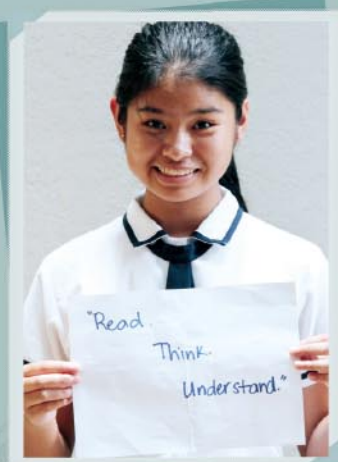 "Read.
Think.
Understand."